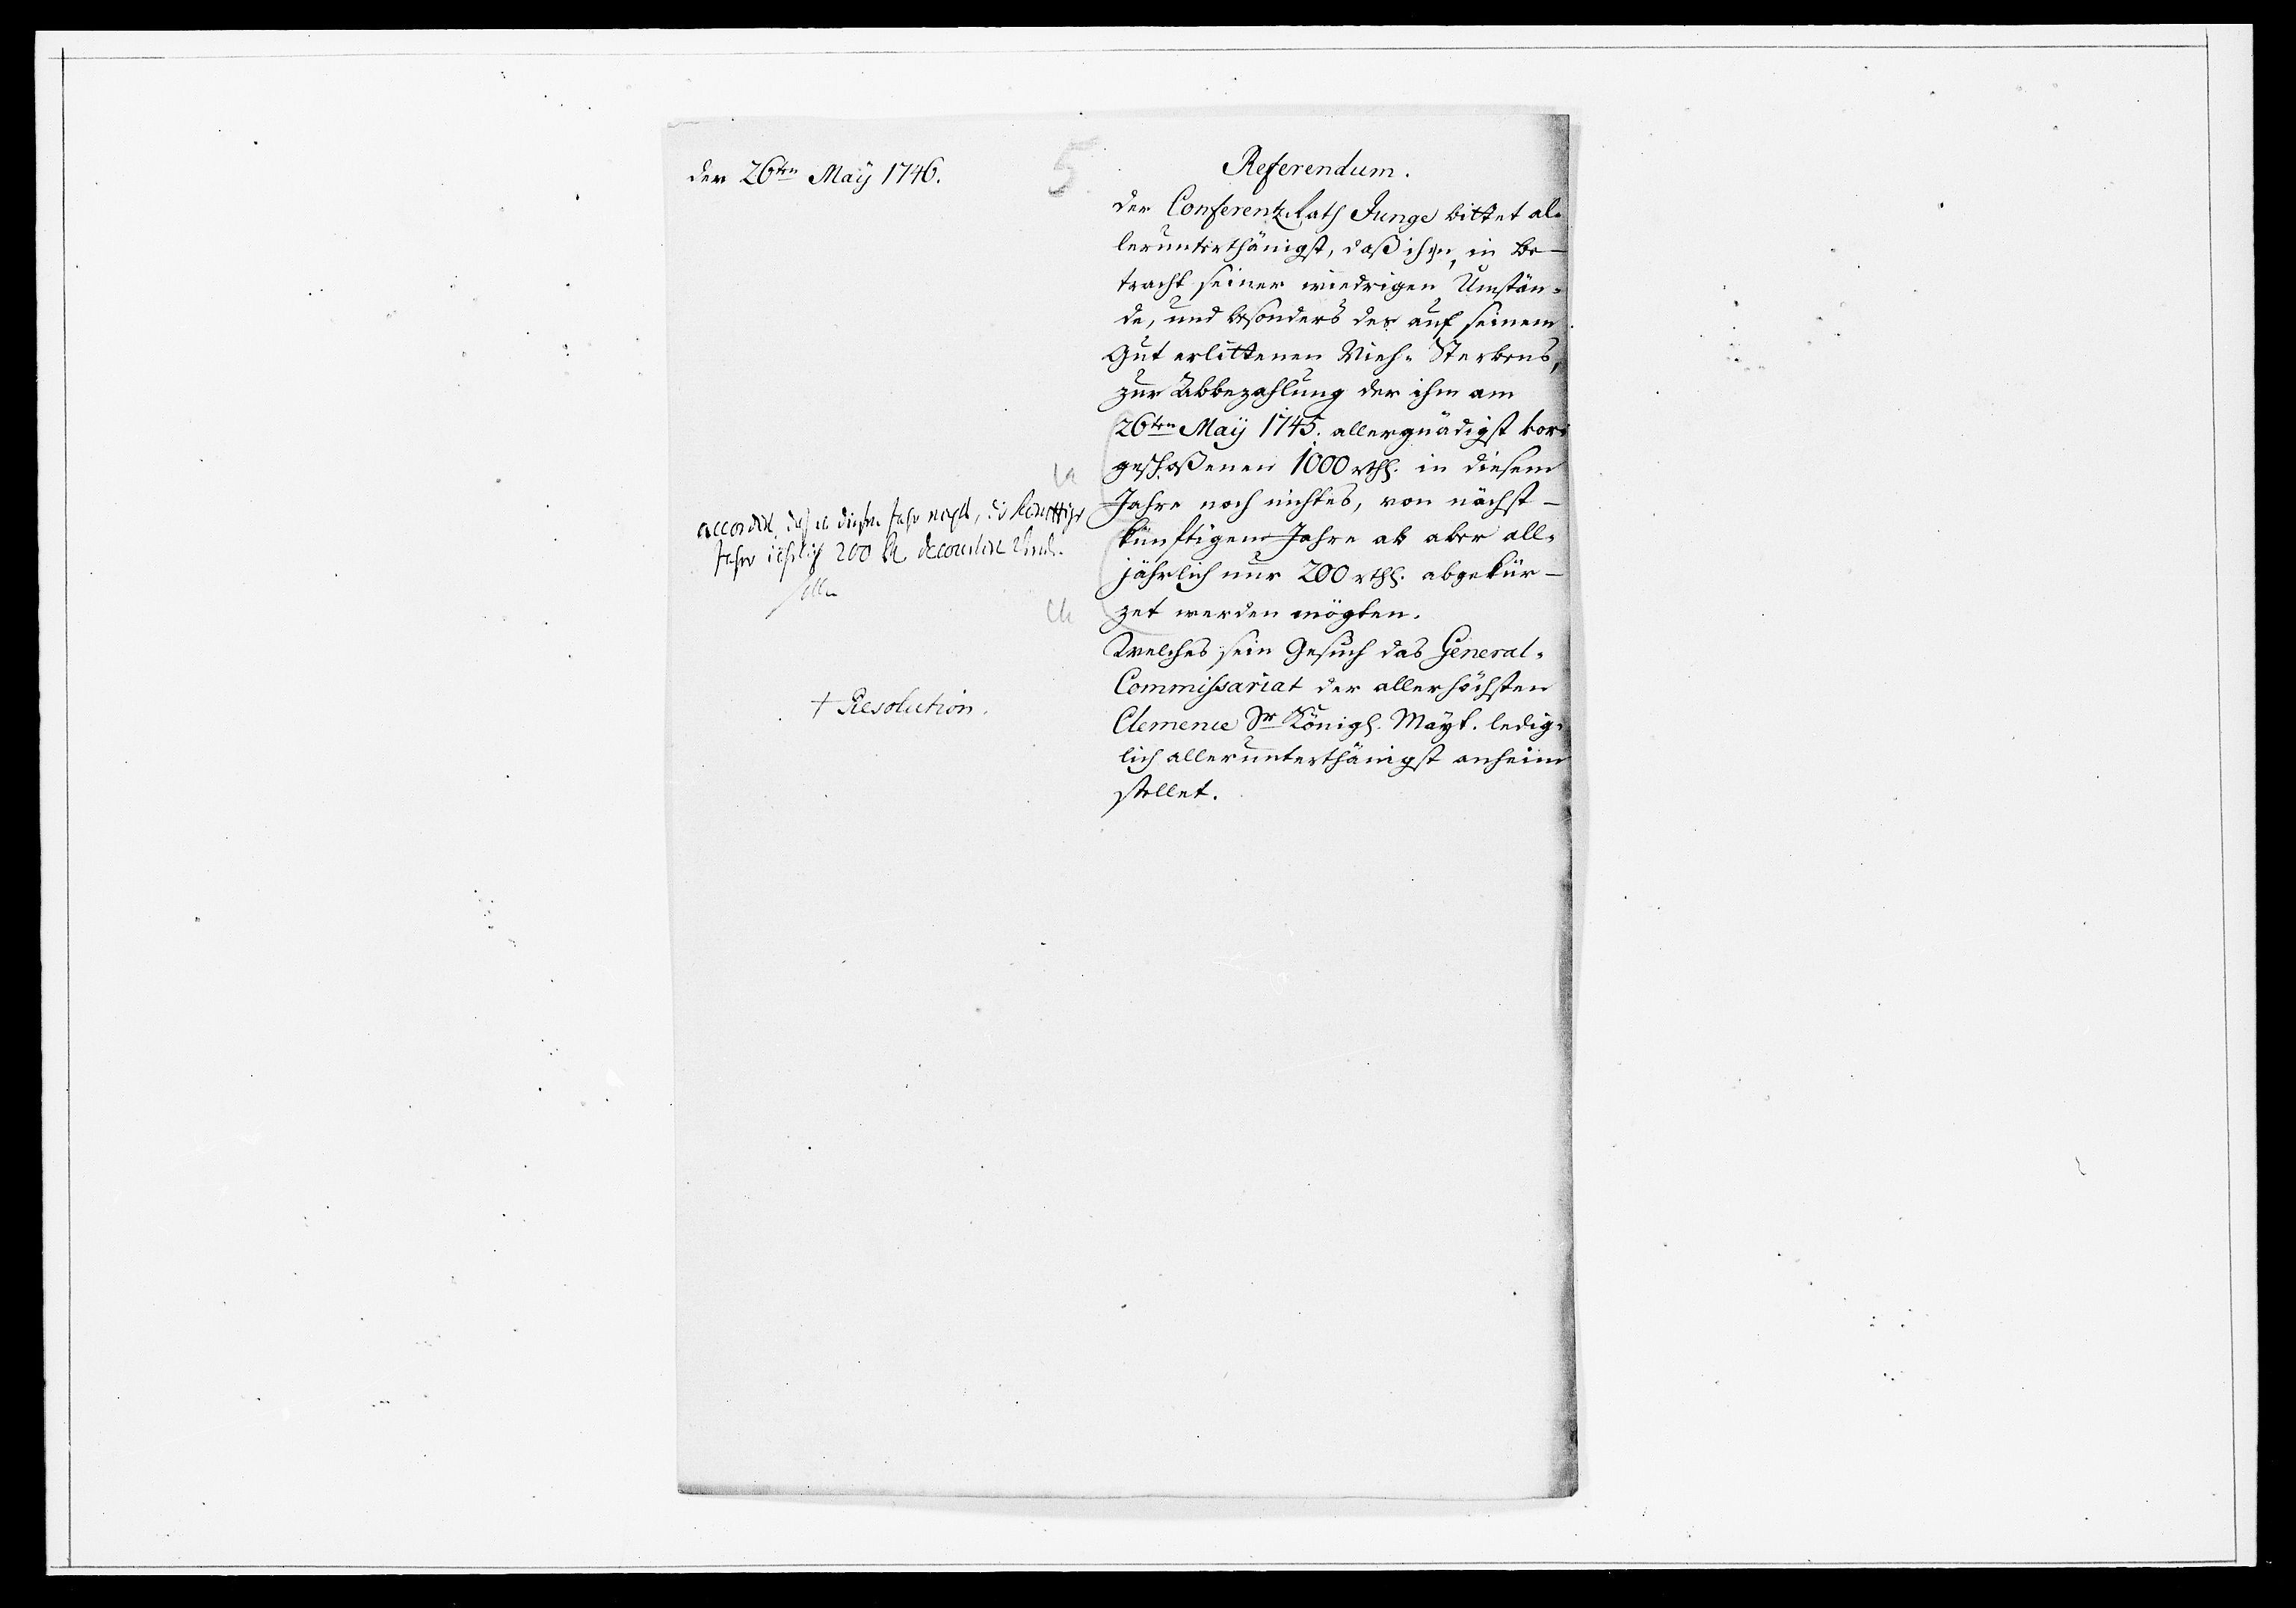 den 26ten Maÿ 1746.
5
Referendum.
der Conferentz Rath Junge bittet al-
lerunterthänigst, daß ihm, in Be-
tracht seiner wiedrigen Umstän-
de, und besonders des auf seinem
Gut erlittenen Vieh-Sterbens,
zur Abbezahlung der ihm am
26ten Maÿ 1745. allergnädigst vor-
geschoßenen 1000 rthl. in diesem
Jahre noch nichtes, von nächst-
künftigem Jahre ab aber all-
jährlich nur 200 rthl. abgekür-
zet werden mögten.
Welches sein Gesuch das General-
Commissariat der allerhöchsten
Clemence Sr Königl. Mayt. ledig-
lich allerunterthänigst anheim
stellet.
accordirt, daß es dießes Jahr nicht, die Künfftige
Jahre jährlich 200 decourtirt
sollen
+ Resolution.